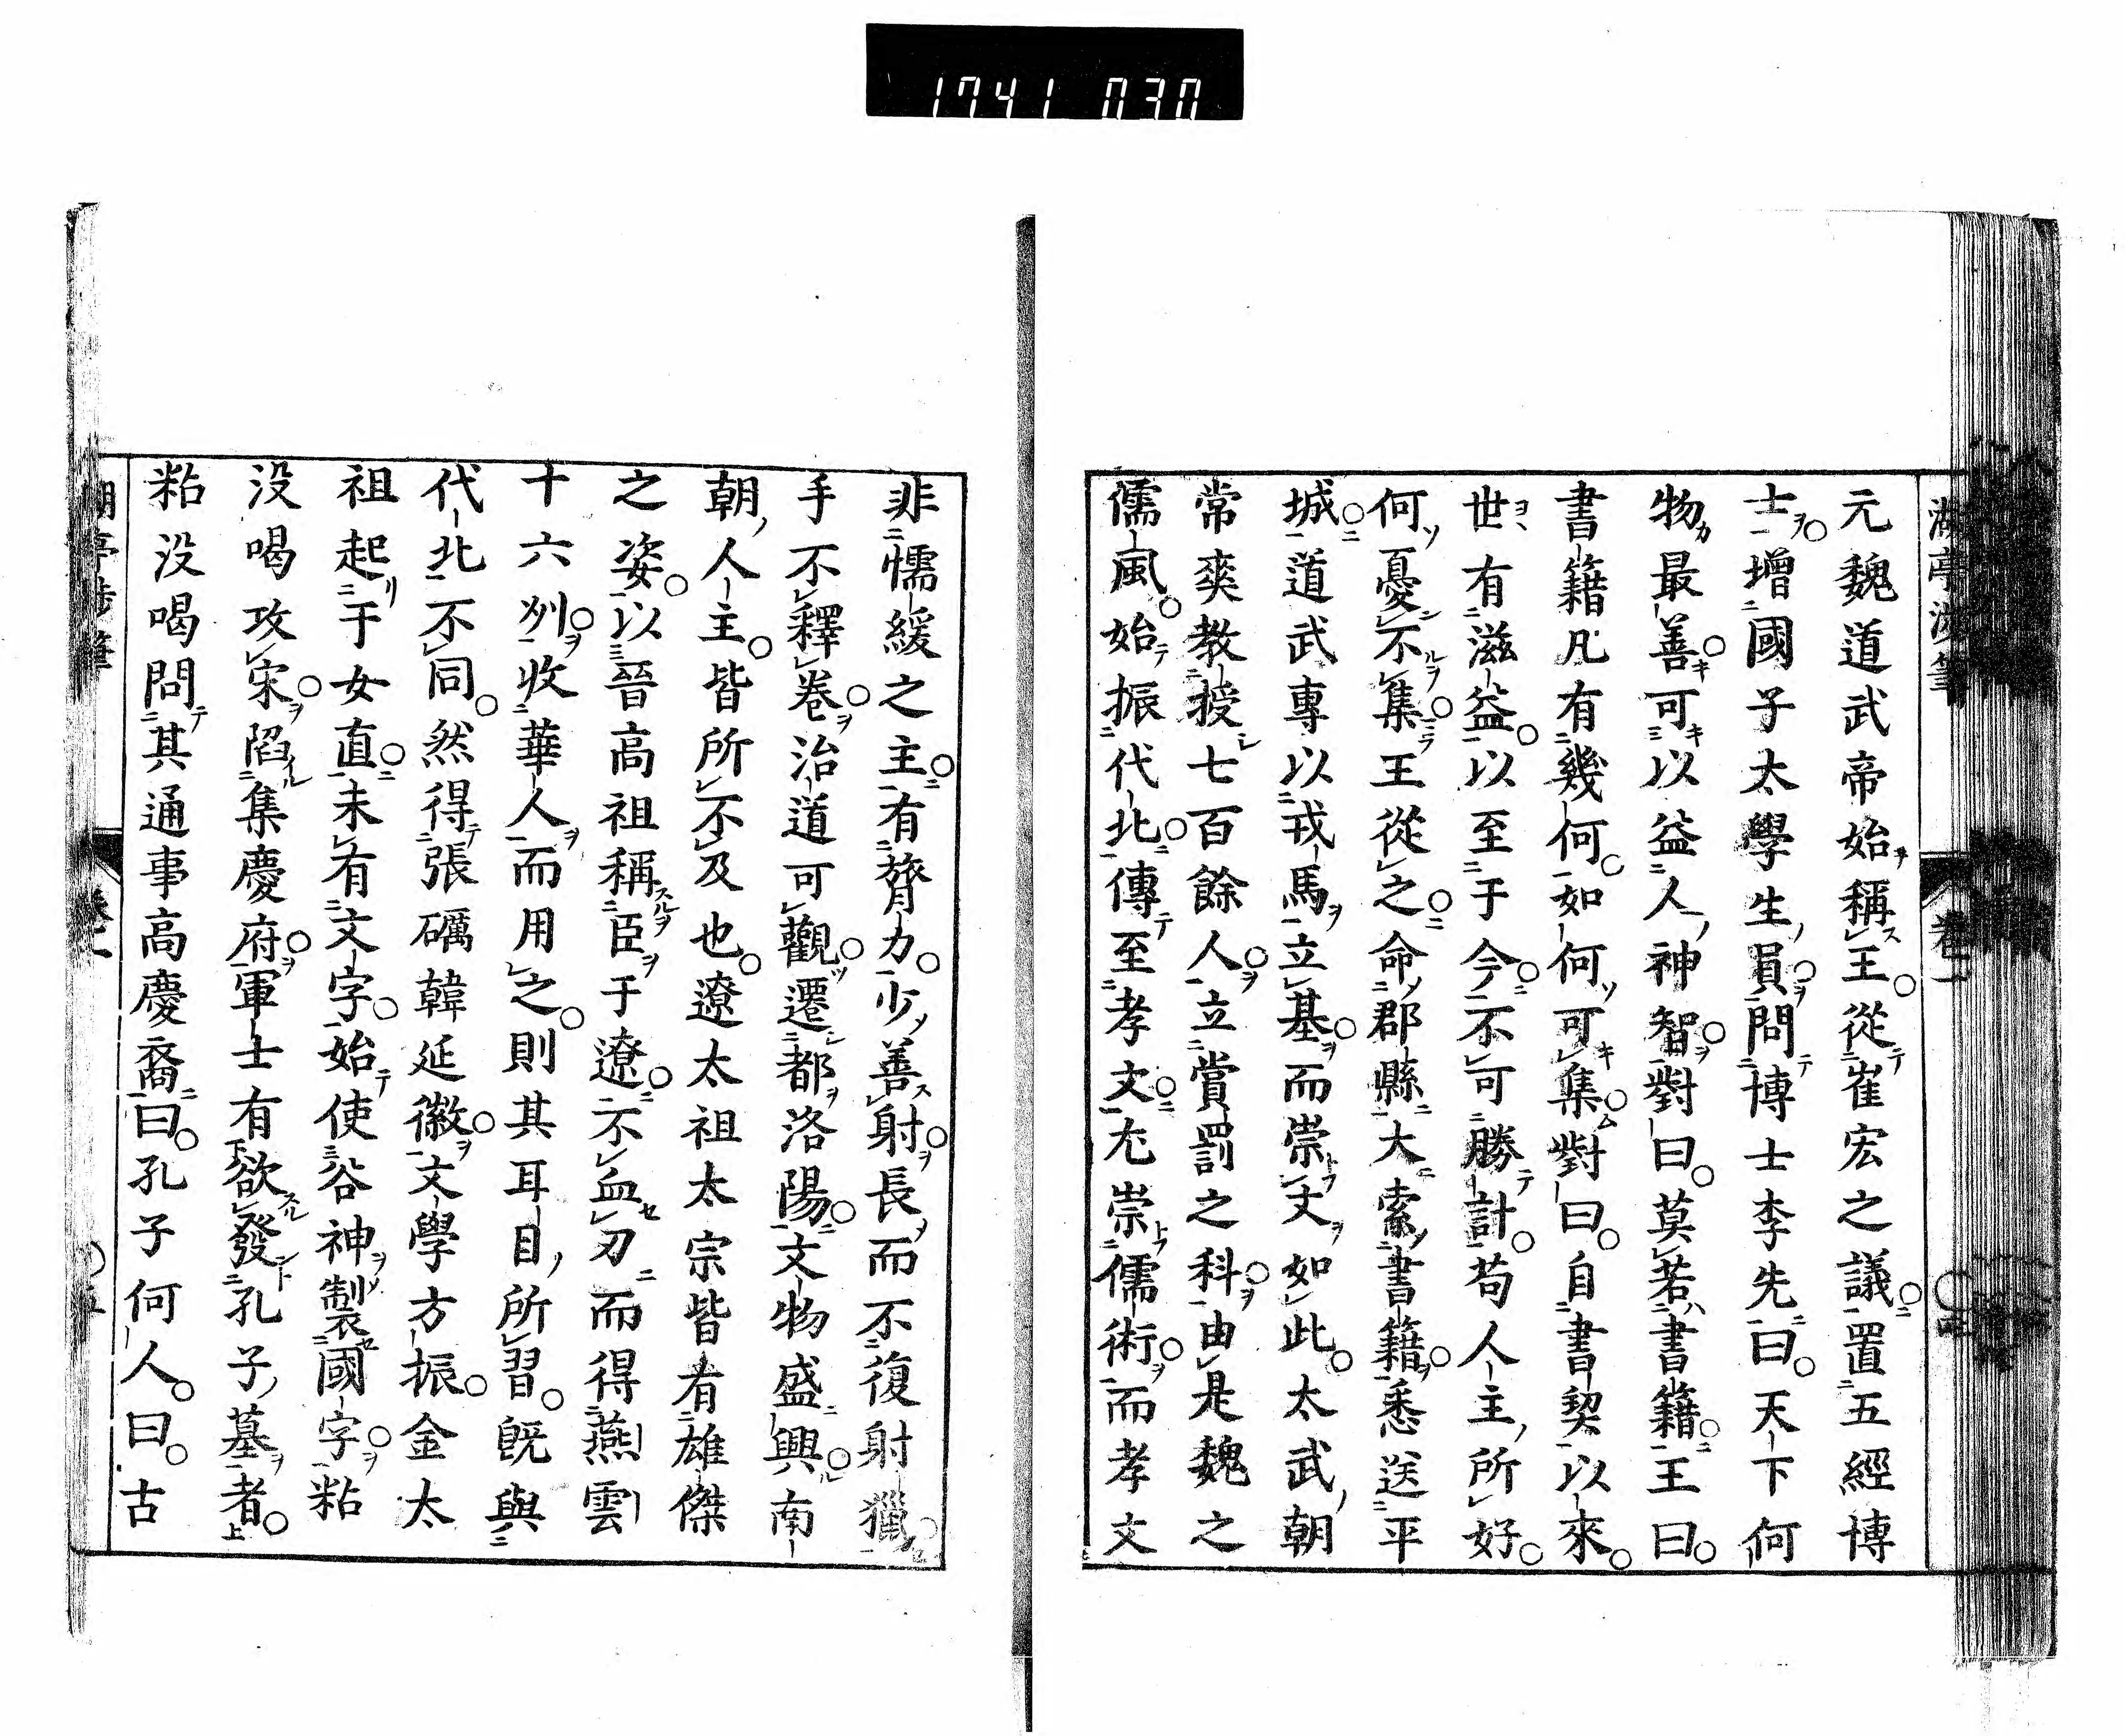 1741 030
湖亭渉筆
卷一
元魏道武帝始稱王從崔宏之議置五經博
士增國子太學生員問博士李先曰天下何
物最善可以益人神智對曰莫若書籍王曰
書籍凡有幾何如何可集對曰自書契以來
世有滋益以至于今不可勝計苟人主所好
何憂不集王從之命郡縣大索書籍悉送平
城道武專以戎馬立基而崇文如此太武朝
常爽教授七百餘人立賞罰之科由是魏之
儒風始振代北傳至孝文尤崇儒術而孝文
非懦緩之主有膂力少善射長而不復射獵
手不釋卷治道可觀遷都洛陽文物盛興南
朝人主皆所不及也遼太祖太宗皆有雄傑
之姿以晉高祖稱臣于遼不血刃而得燕雲
十六州收華人而用之則其耳目所習既與
代北不同然得張礪韓延徽文學方振金太
祖起于女直未有文字始使谷神製國字粘
没喝攻宋陷集慶府軍士有欲發孔子墓者
粘没喝問其通事高慶裔曰孔子何人曰古